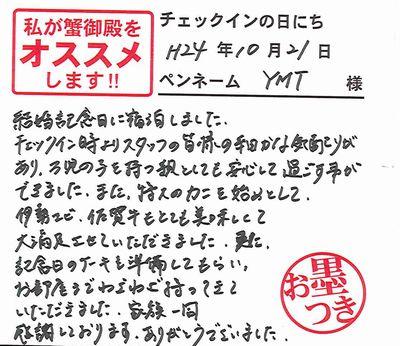 私が蟹御殿を
オススメ
します!!
チェックインの日にち
H24年10月21日
ペンネーム YMT 様
結婚記念日に宿泊しました。
チェックイン時よりスタッフの皆様の細かな気配りが
あり、3児の子を持つ親としても安心して過ごす事が
できました。また、特大のカニを始めとして、
伊勢エビ、佐賀牛もとても美味しくて
大満足させていただきました。更に、
記念日のケーキも準備してもらい、
お部屋までわざわざ持ってきて
いただきました。家族一同
感謝しております。ありがとうございました。
お墨つき